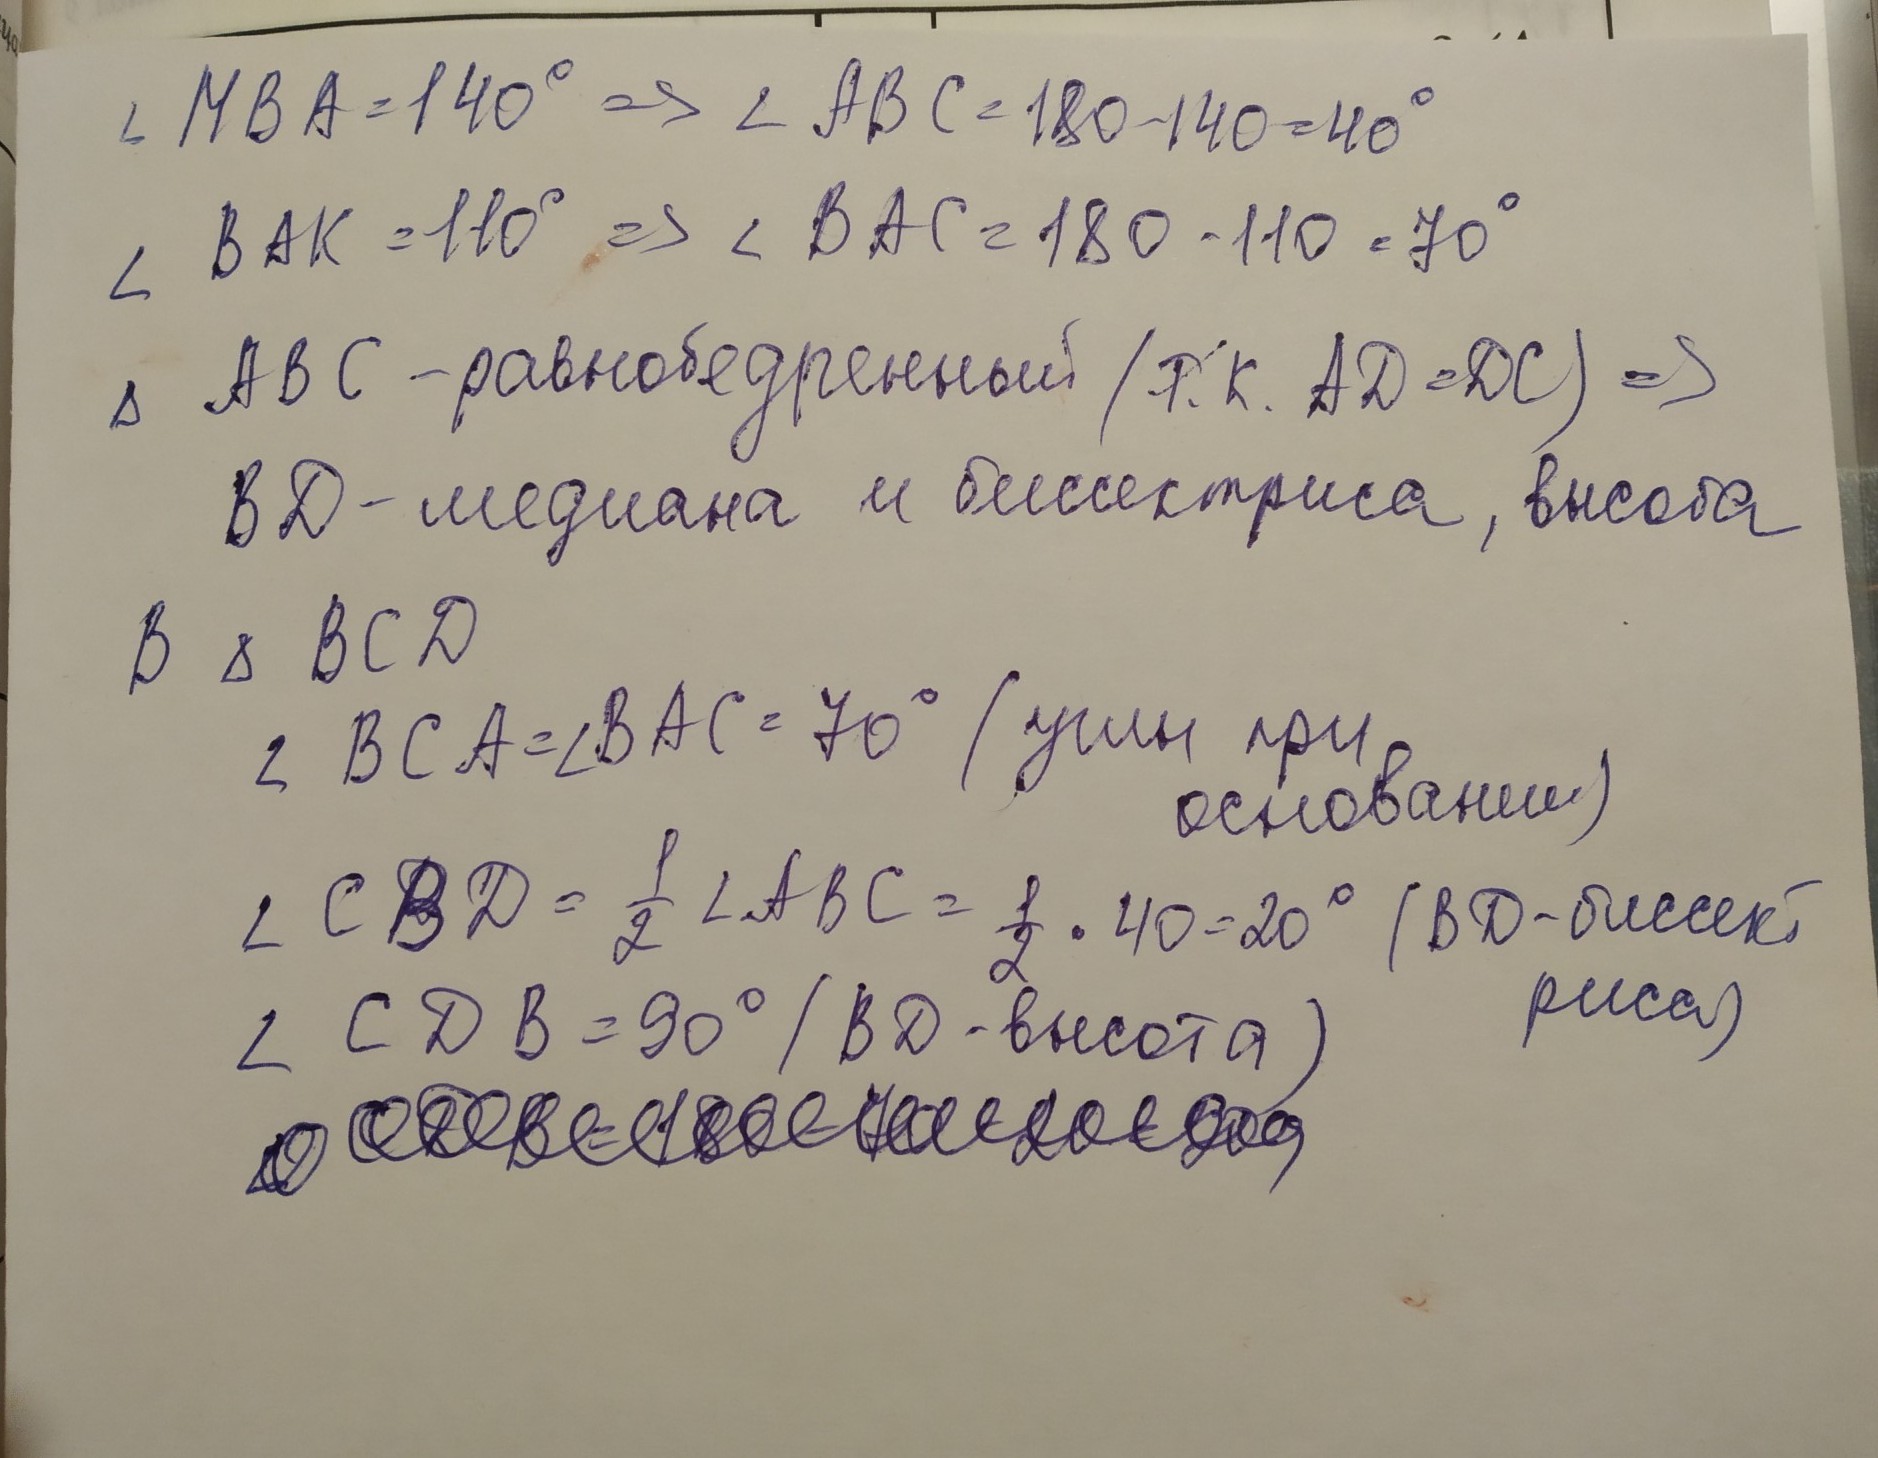 ∠ MBA=140° => ∠ ABC=180-140=40°
∠ BAK=110° => ∠ BAC=180-110=70°
Δ ABC-равнобедренный (т.к. AD=DC) =>
BD-медиана и биссектриса, высота
В Δ BCD
∠ BCA=∠BAC=70° (углы при
основании)
∠ CBD = 1/2 ∠ABC = 1/2 · 40=20° (BD-биссект
риса)
∠ CDB=90° (BD-высота)